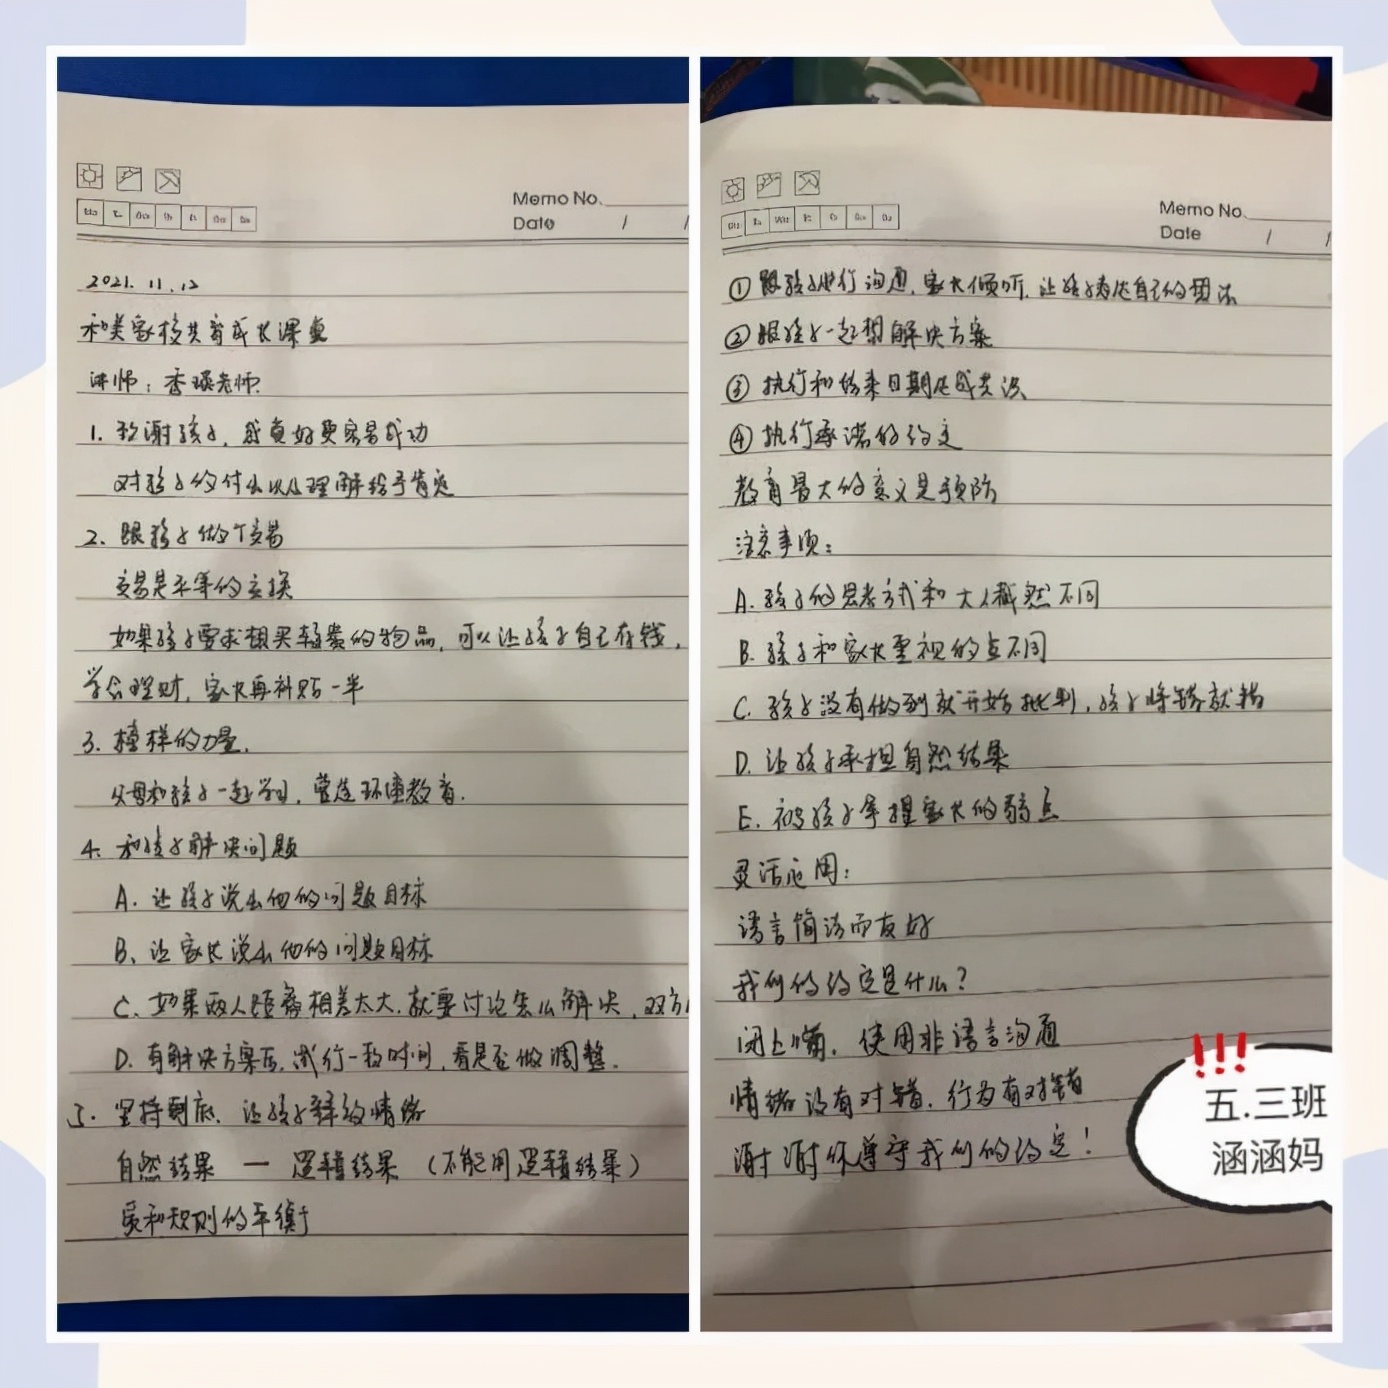 Memo No.
Date / /
2021.11.12
和美家校共育成长课堂
讲师：香瑛老师.
1. 致谢孩子，我良好更容易成功
对孩子的付出以及理解给予肯定
2. 跟孩子做个交易
交易是平等的交换
如果孩子要求想买较贵的物品，可以让孩子自己存钱，
学会理财，家长再补贴一半
3. 榜样的力量.
父母和孩子一起学习，营造环境教育.
4. 和孩子解决问题
A. 让孩子说出他的问题目标
B、让家长说出他的问题目标
C、如果两人距离相差太大，就要讨论怎么解决，双方
D. 有解决方案后，试行一段时间，看是否做调整.
5. 坚持到底、让孩子释放情绪
自然结果 — 逻辑结果（不能用逻辑结果）
爱和规则的平衡
Memo No.
Date / /
① 跟孩子进行沟通，家长倾听，让孩子表达自己的想法
② 跟孩子一起想解决方案
③ 执行和结束日期达成共识
④ 执行承诺的约定
教育最大的意义是预防
注意事项：
A. 孩子的思考方式和大人截然不同
B. 孩子和家长重视的点不同
C. 孩子没有做到就开始批判，孩子将错就错
D. 让孩子承担自然结果
E. 被孩子掌握家长的弱点
灵活应用：
语言简洁而友好
我们的约定是什么？
闭上嘴，使用非语言沟通
情绪没有对错，行为有对错
谢谢你遵守我们的约定！
!!!
五.三班
涵涵妈